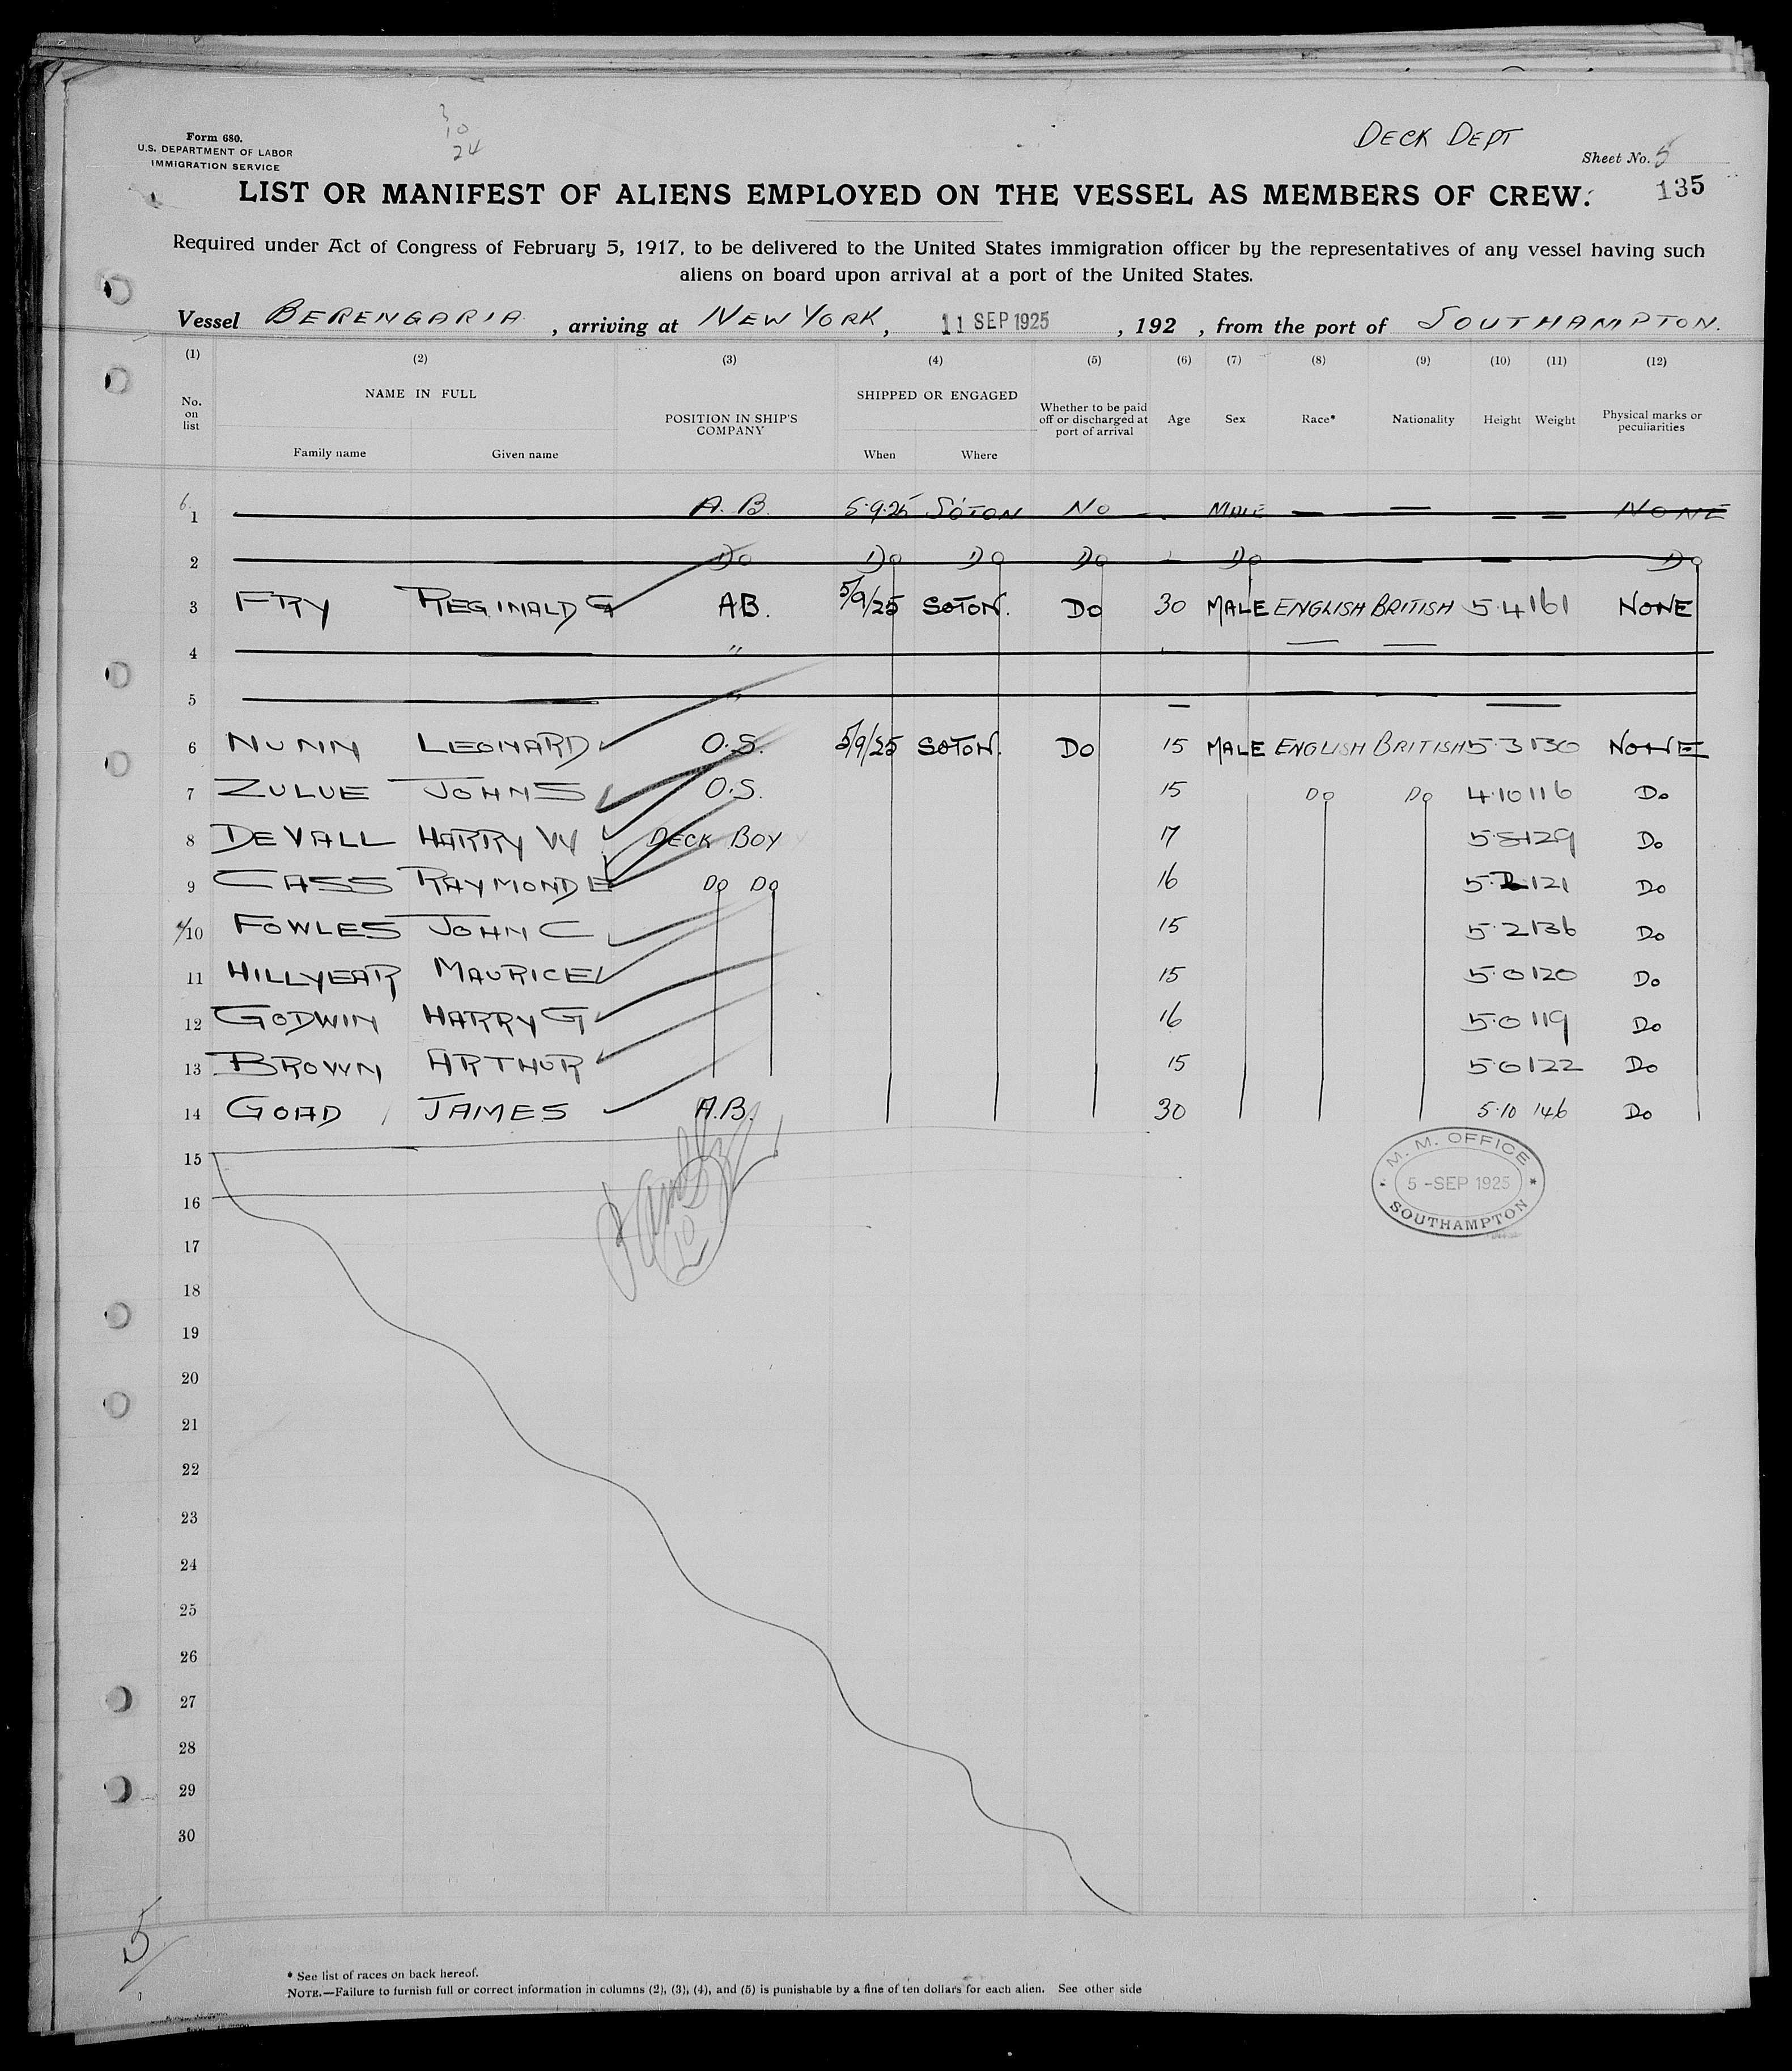 Form 680.
U.S. DEPARTMENT OF LABOR
IMMIGRATION SERVICE
3
10
24
DECK DEPT
Sheet No. 5
135
LIST OR MANIFEST OF ALIENS EMPLOYED ON THE VESSEL AS MEMBERS OF CREW.
Required under Act of Congress of February 5, 1917, to be delivered to the United States immigration officer by the representatives of any vessel having such
aliens on board upon arrival at a port of the United States.
Vessel BERENGARIA, arriving at NEW YORK, 11 SEP 1925, 192 , from the port of SOUTHAMPTON.
(1) (2) (3) (4) (5) (6) (7) (8) (9) (10) (11) (12)
No. on list NAME IN FULL Family name Given name POSITION IN SHIP'S COMPANY SHIPPED OR ENGAGED When Where Whether to be paid off or discharged at port of arrival Age Sex Race* Nationality Height Weight Physical marks or peculiarities
6
1 A.B. 5.9.25 SOTON No MALE — — — — NONE
2 Do Do Do Do Do Do
3 FRY REGINALD G AB. 5/9/25 SOTON. Do 30 MALE ENGLISH BRITISH 5.4 161 NONE
4 "
5 "
6 NUNN LEONARD O.S. 5/9/25 SOTON. Do 15 MALE ENGLISH BRITISH 5.3 130 NONE
7 ZULUE JOHN S O.S. 15 Do Do 4.10 116 Do
8 DEVALL HARRY W DECK BOY 17 5.8 129 Do
9 CASS RAYMOND E Do Do 16 5.2 121 Do
10 FOWLES JOHN C 15 5.2 136 Do
11 HILLYEAR MAURICE 15 5.0 120 Do
12 GODWIN HARRY G 16 5.0 119 Do
13 BROWN ARTHUR 15 5.0 122 Do
14 GOAD JAMES A.B. 30 5.10 146 Do
M. M. OFFICE
5 -SEP 1925
SOUTHAMPTON
10
15
16
17
18
19
20
21
22
23
24
25
26
27
28
29
30
5
* See list of races on back hereof.
NOTE.—Failure to furnish full or correct information in columns (2), (3), (4), and (5) is punishable by a fine of ten dollars for each alien. See other side